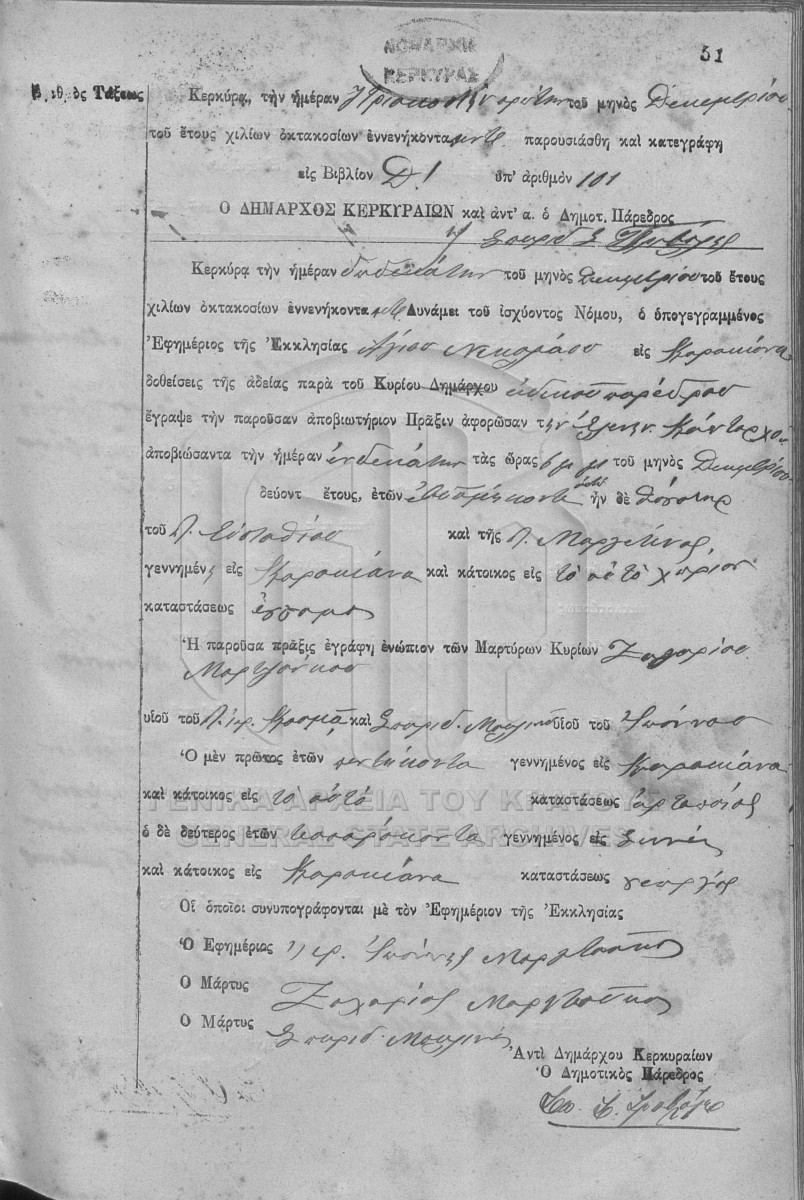 ΝΟΜΑΡΧΙΑ
ΚΕΡΚΥΡΑΣ
51
Τάξεως
Κερκύρᾳ, τὴν ἡμέραν τριακοστὴν πρώτην τοῦ μηνὸς Δεκεμβρίου
τοῦ ἔτους χιλίων ὀκτακοσίων ἐννενήκοντα παρουσιάσθη καὶ κατεγράφη
εἰς Βιβλίον Δ! ὑπ' ἀριθμὸν 101
Ο ΔΗΜΑΡΧΟΣ ΚΕΡΚΥΡΑΙΩΝ καὶ ἀντ' α. ὁ Δημοτ. Πάρεδρος
Σπυρίδ. Σ.
Κερκύρᾳ τὴν ἡμέραν δωδεκάτην τοῦ μηνὸς Δεκεμβρίου τοῦ ἔτους
χιλίων ὀκτακοσίων ἐννενήκοντα Δυνάμει τοῦ ἰσχύοντος Νόμου, ὁ ὑπογεγραμμένος
Ἐφημέριος τῆς Ἐκκλησίας Ἁγίου Νικολάου εἰς Κορακιάνα
δοθείσης τῆς ἀδείας παρὰ τοῦ Κυρίου Δημάρχου εἰδικοῦ παρέδρου
ἔγραψε τὴν παροῦσαν ἀποβιωτήριον Πρᾶξιν ἀφορῶσαν τὴν Ἑλένην
ἀποβιώσαντα τὴν ἡμέραν ἑνδεκάτην τὰς ὥρας 6 μ μ τοῦ μηνὸς Δεκεμβρίου
δεύοντ ἔτους, ἐτῶν ἑβδομήκοντα ἦν δὲ θυγάτηρ
τοῦ π. Εὐσταθίου καὶ τῆς π.
γεννημένη εἰς Κορακιάνα καὶ κάτοικος εἰς τὸ αὐτὸ χωρίον
καταστάσεως ἔγγαμος
Ἡ παροῦσα πρᾶξις ἐγράφη ἐνώπιον τῶν Μαρτύρων Κυρίων Ζαχαρίου
Μαρτζούκου
υἱοῦ τοῦ π. ἱερ. Κοσμᾶ καὶ Σπυρίδ. υἱοῦ τοῦ Ἰωάννου
Ὁ μὲν πρῶτος ἐτῶν πεντήκοντα γεννημένος εἰς Κορακιάνα
καὶ κάτοικος εἰς τὸ αὐτὸ καταστάσεως ἀρτοποιός
ὁ δὲ δεύτερος ἐτῶν τεσσαράκοντα γεννημένος εἰς
καὶ κάτοικος εἰς Κορακιάνα καταστάσεως γεωργός
Οἱ ὁποῖοι συνυπογράφονται μὲ τὸν Ἐφημέριον τῆς Ἐκκλησίας
Ὁ Ἐφημέριος ἱερ. Ἰωάννης Μαρτζοῦκος
Ο Μάρτυς Ζαχαρίας Μαρτζοῦκος
Ο Μάρτυς Σπυρίδ.
Ἀντὶ Δημάρχου Κερκυραίων
Ὁ Δημοτικὸς Πάρεδρος
Σπ. Σ.
ΓΕΝΙΚΑ ΑΡΧΕΙΑ ΤΟΥ ΚΡΑΤΟΥΣ
GENERAL STATE ARCHIVES